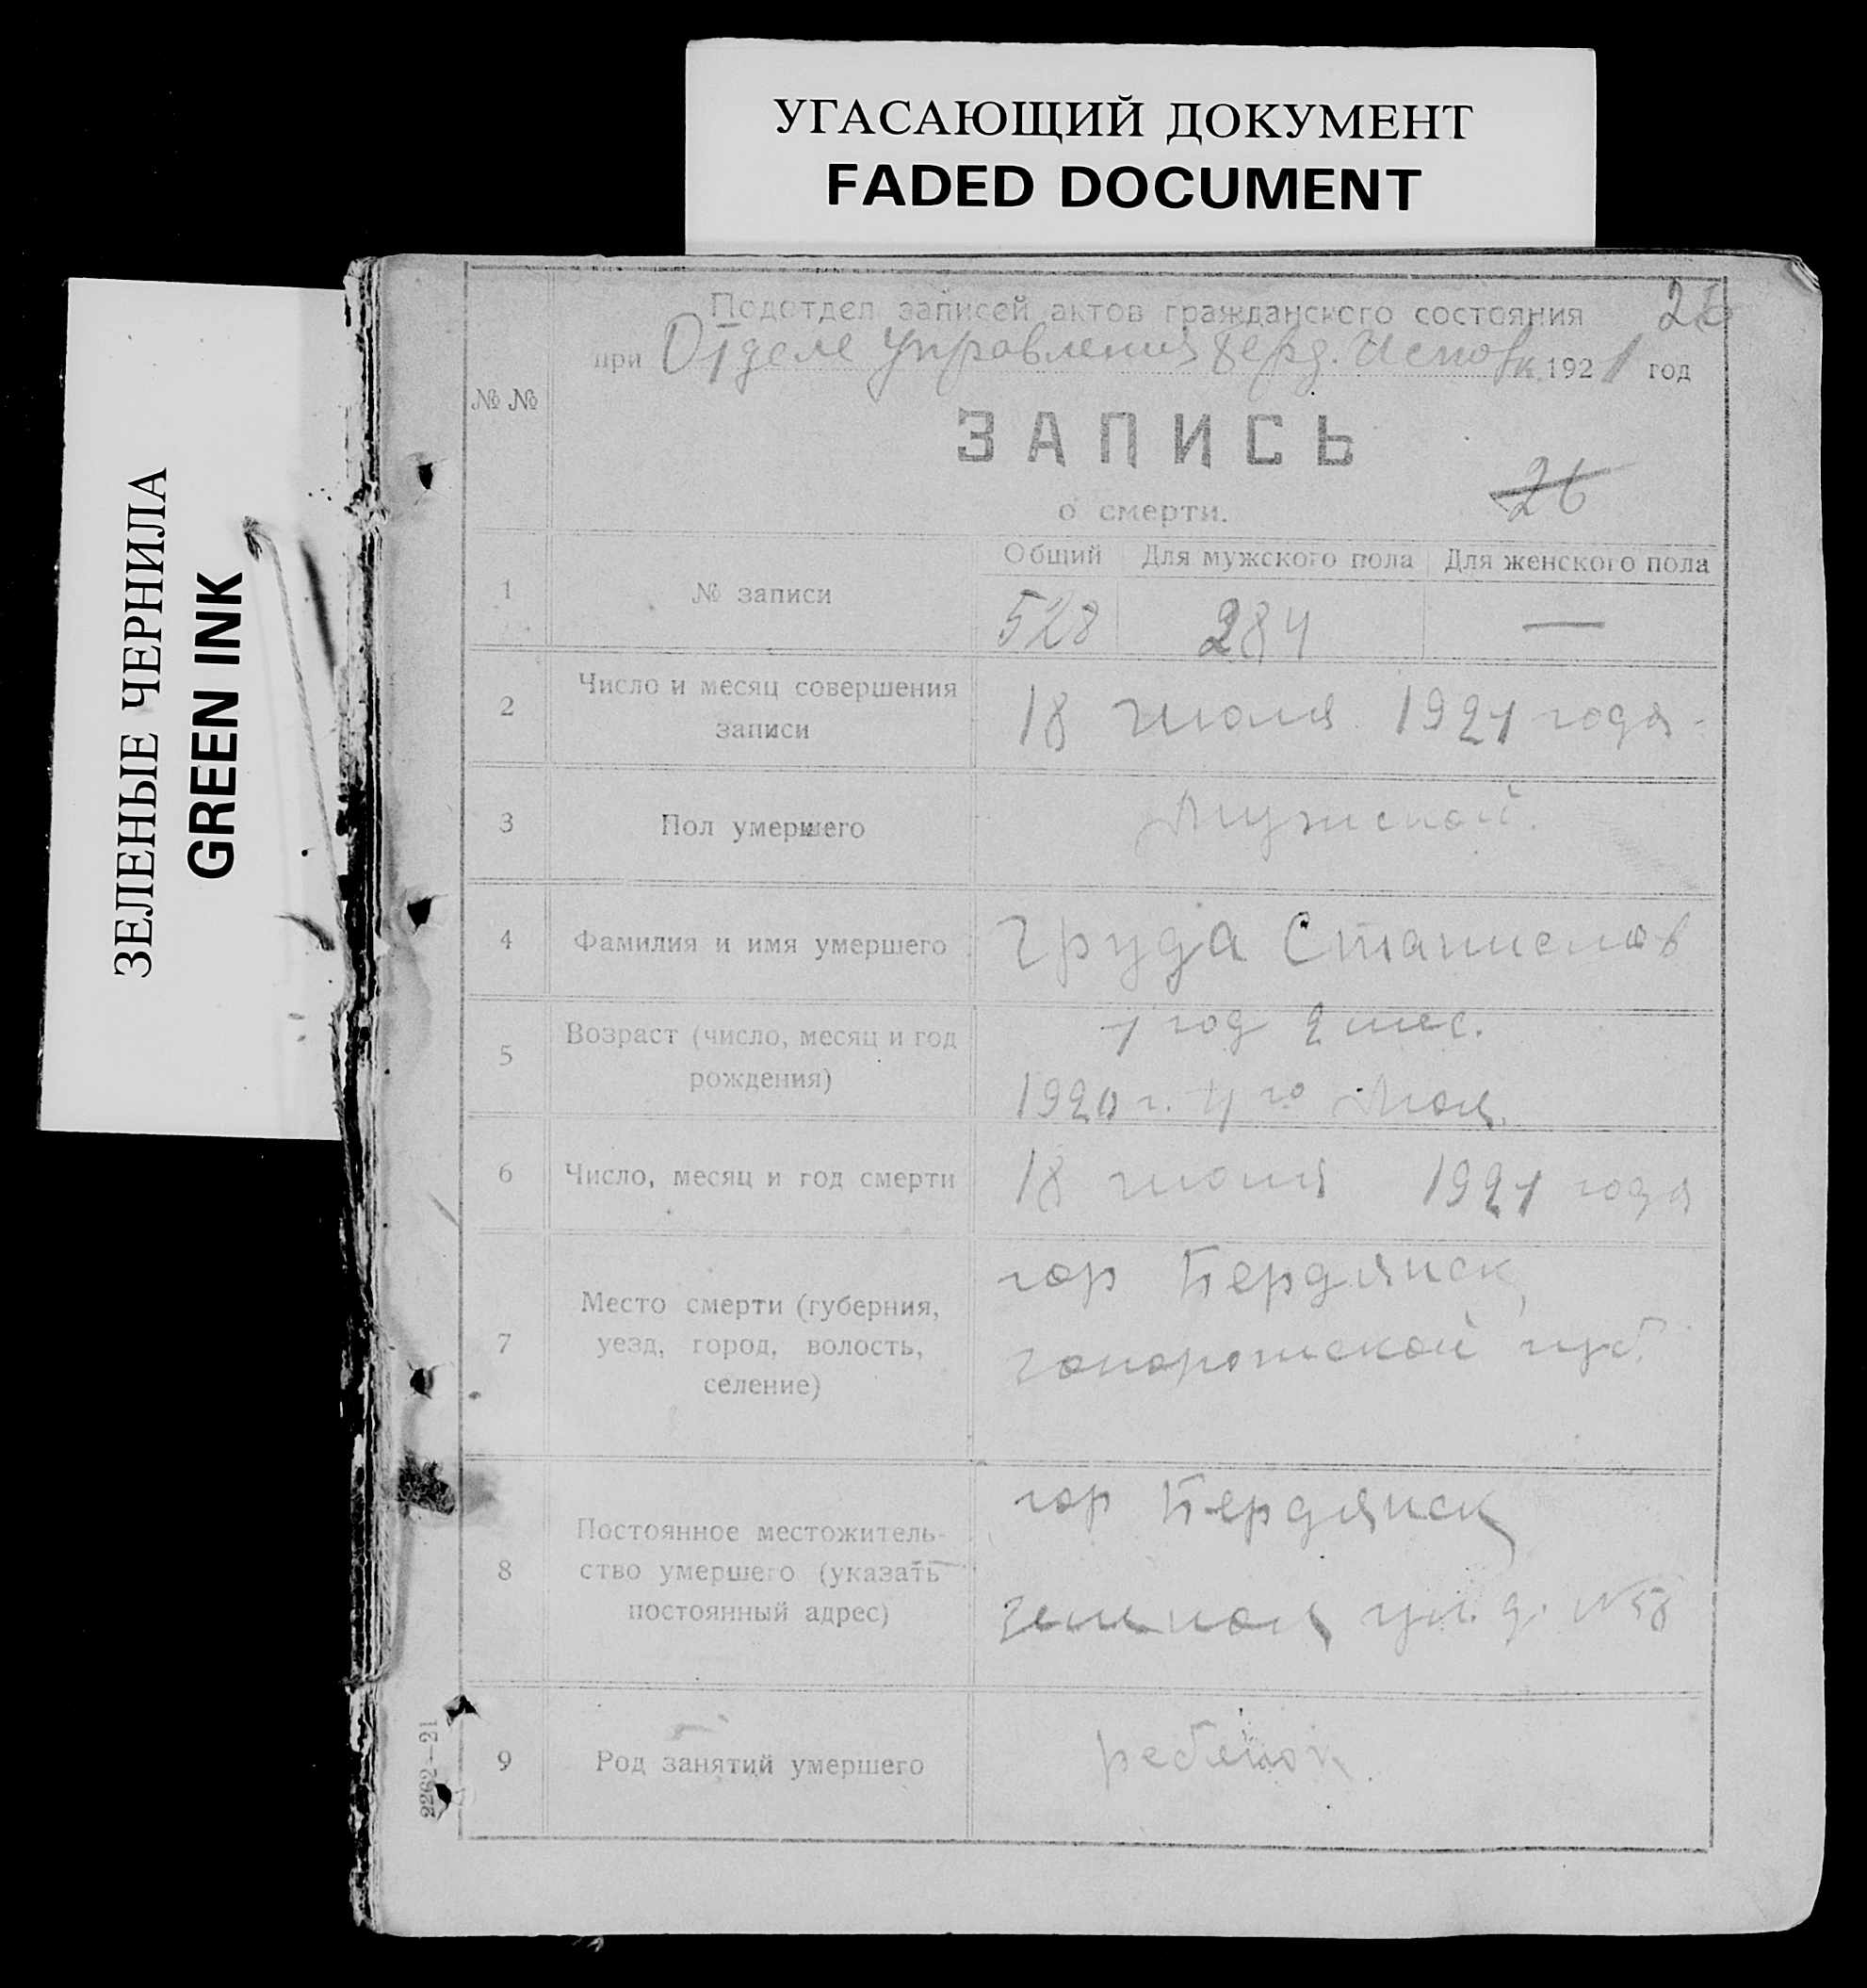 УГАСАЮЩИЙ ДОКУМЕНТ
FADED DOCUMENT
ЗЕЛЕНЫЕ ЧЕРНИЛА
GREEN INK
Подотдел записей актов гражданского состояния
при Отделе Управления Берд. Исполк. 1921 год
№ №
ЗАПИСЬ
о смерти.
26
Общий Для мужского пола Для женского пола
1 № записи 528 284 —
2 Число и месяц совершения
записи
18 июля 1921 года
3 Пол умершего Мужской.
4 Фамилия и имя умершего Груда Станислав
5 Возраст (число, месяц и год
рождения)
1 год 2 мес.
1920 г. 4го Мая.
6 Число, месяц и год смерти 18 июля 1921 года
7 Место смерти (губерния,
уезд, город, волость,
селение)
гор Бердянск,
Запорожской губ.
8 Постоянное местожитель-
ство умершего (указать
постоянный адрес)
гор Бердянск
ул. д. №58
9 Род занятий умершего ребенок.
2262—21